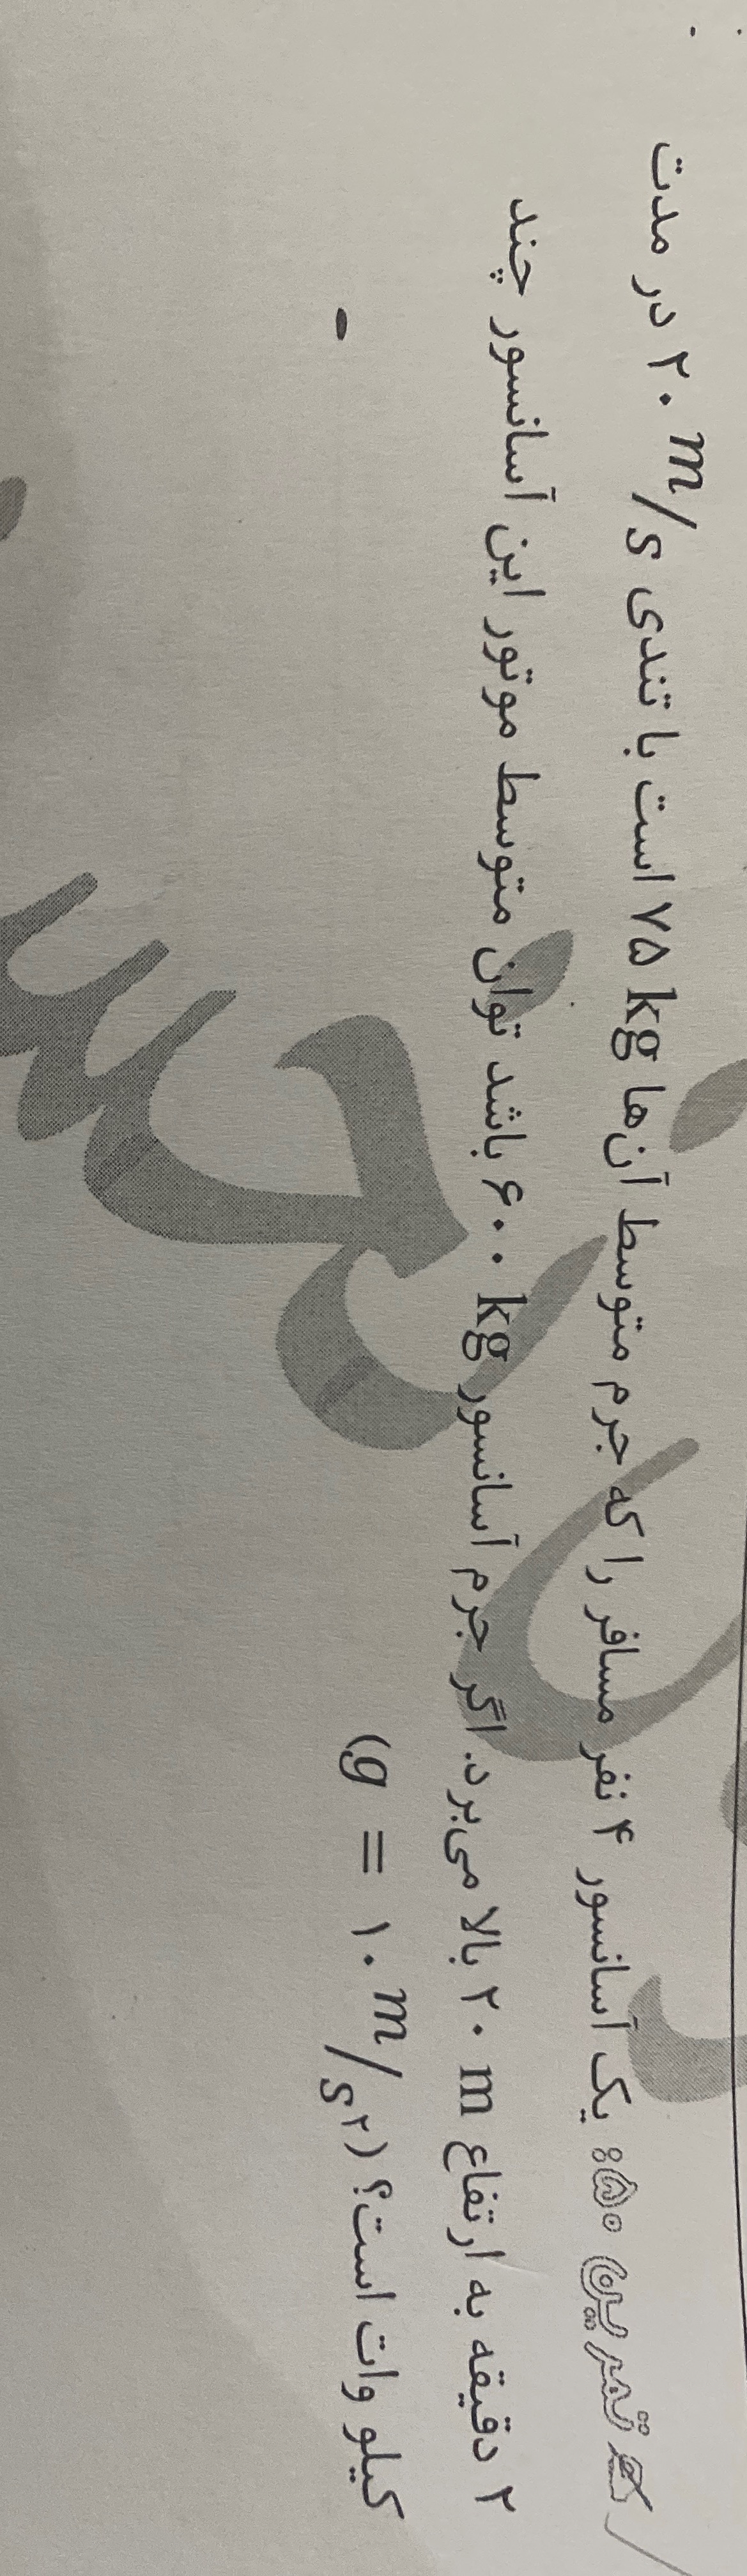 تمرین ۵۰: یک آسانسور ۴ نفر مسافر را که جرم متوسط آن‌ها ۷۵ kg است با تندی ۲۰ m/s در مدت
۲ دقیقه به ارتفاع ۲۰ m بالا می‌برد. اگر جرم آسانسور ۶۰۰ kg باشد توان متوسط موتور این آسانسور چند
کیلو وات است؟ (g = ۱۰ m/s۲)